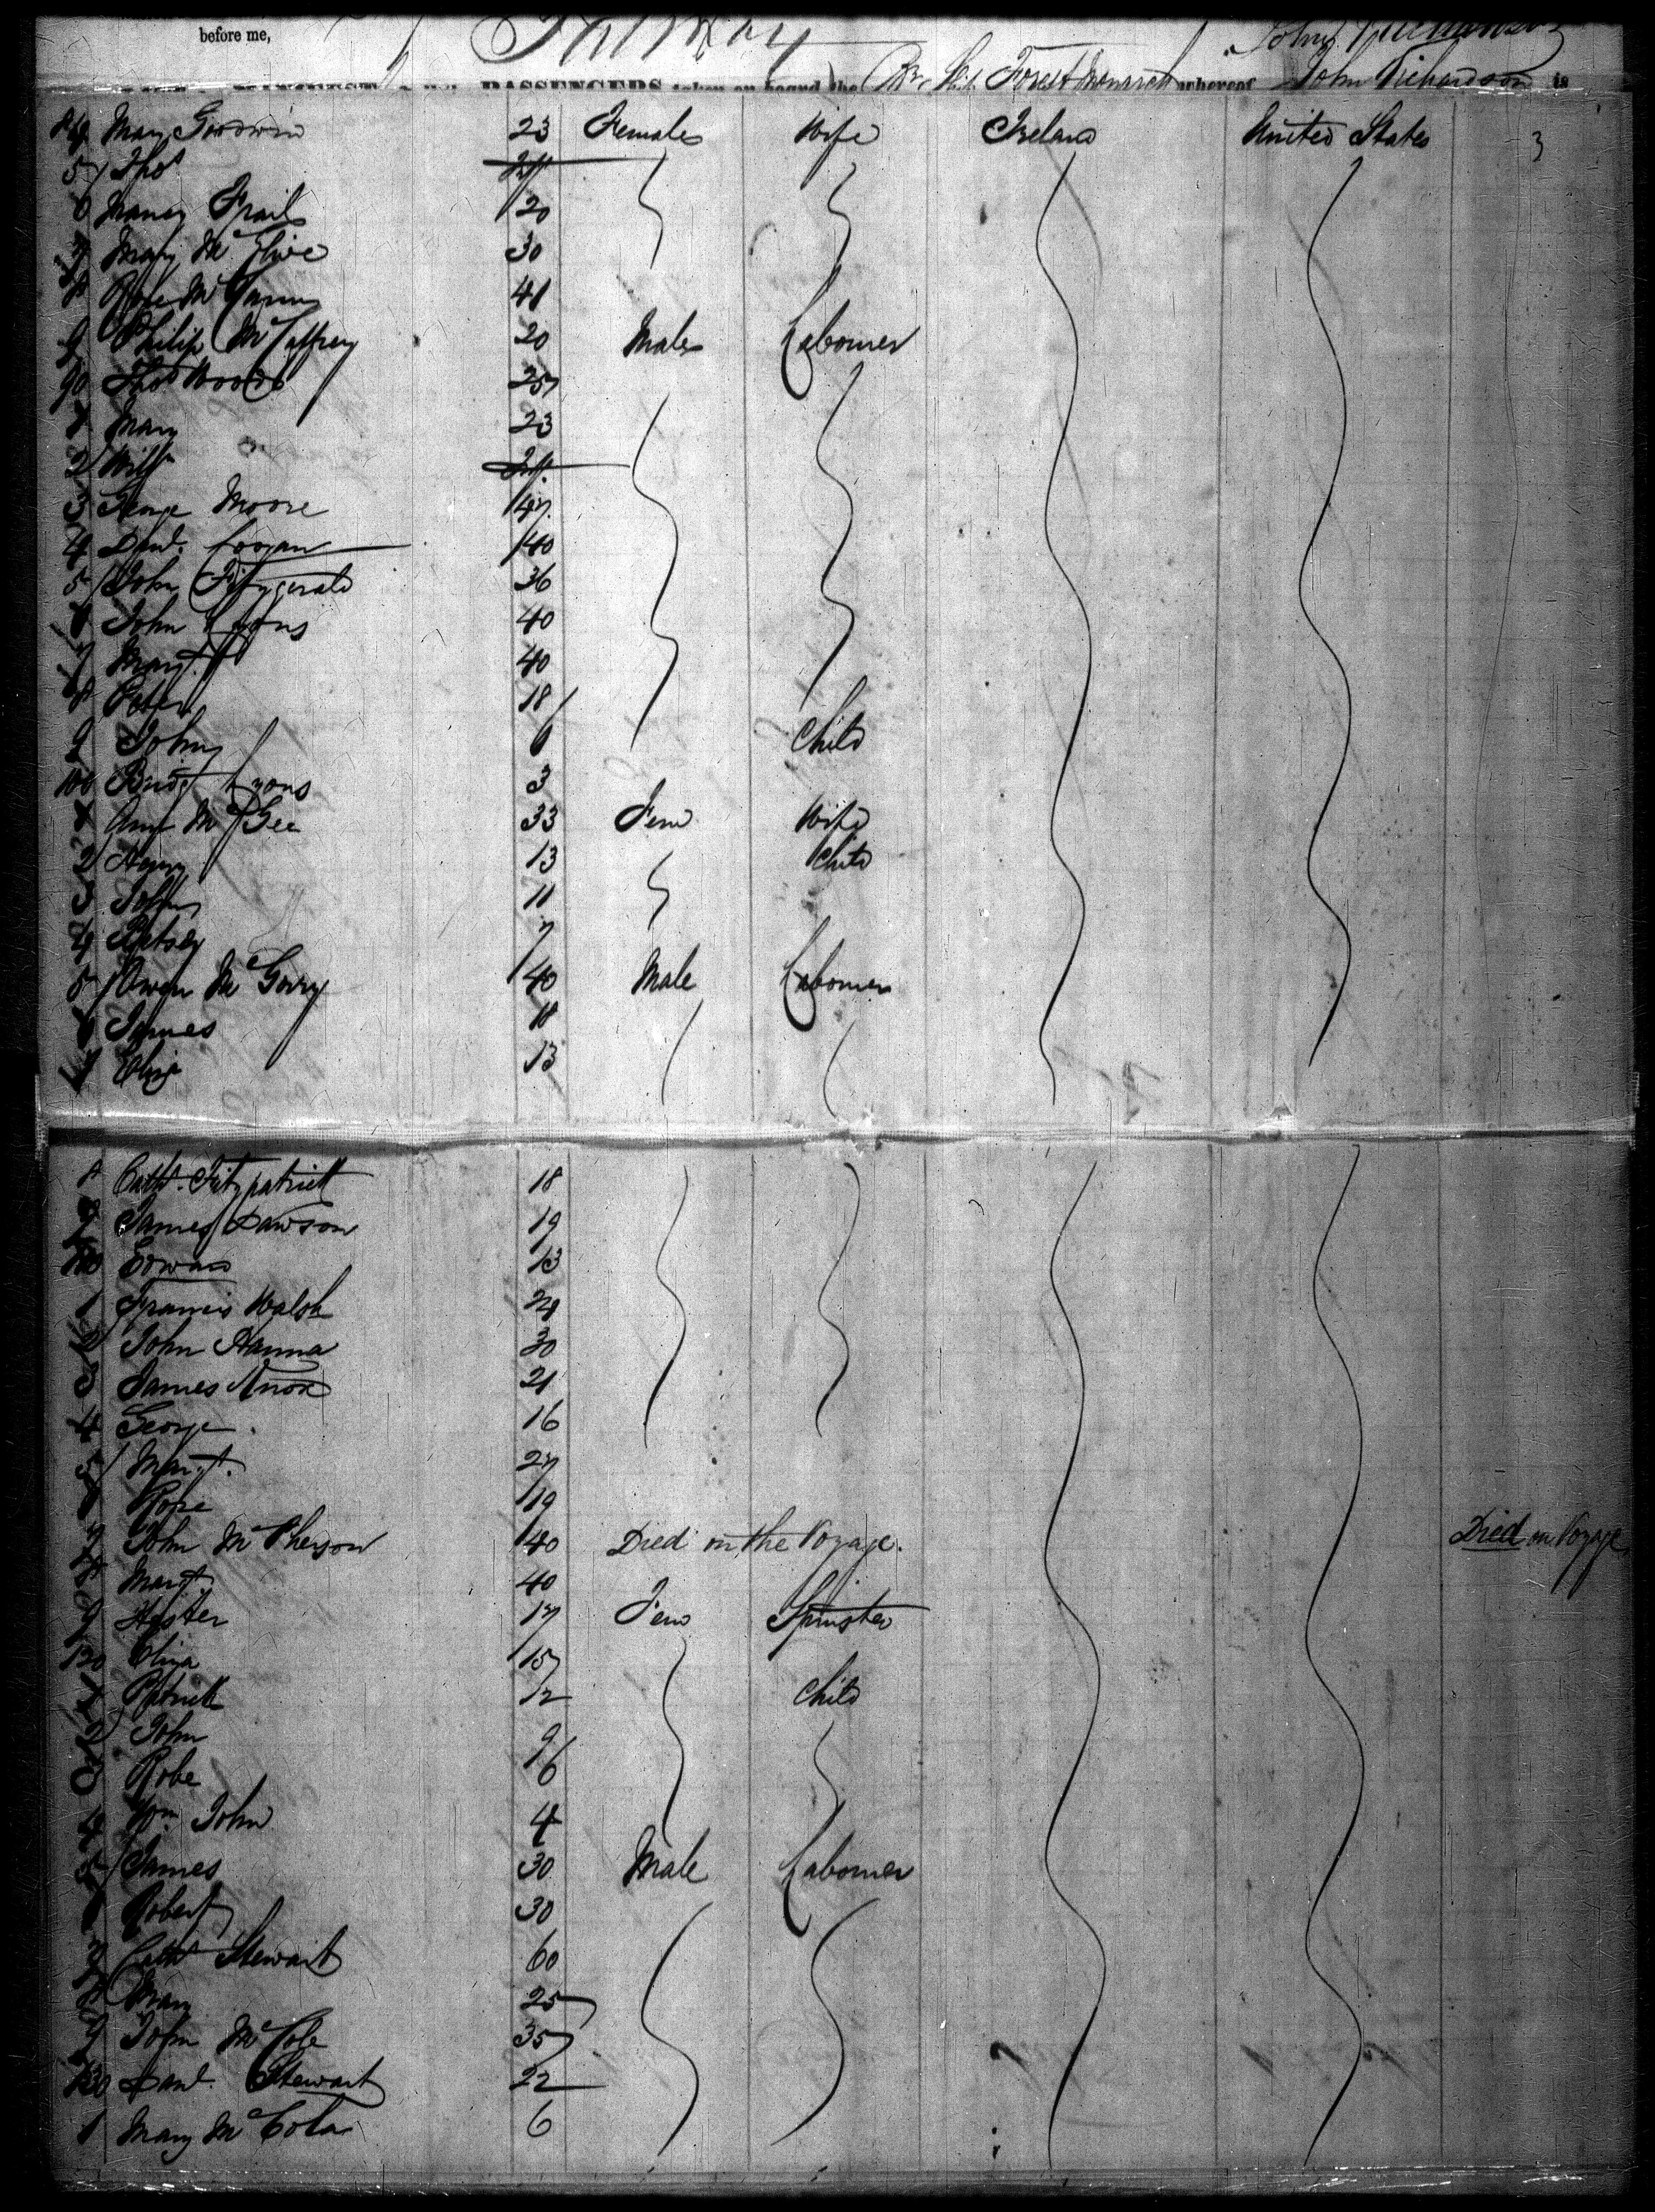 before me,
PASSENGERS taken on board the Br. Ship Forest Monarch whereof John Richardson is
84 Mary Goodwin 23 Females Wife Ireland United States 3
5 Thos Inf
6 Nancy Frail 20
7 Mary McElwee 30
8 Rose McGann 41
9 Philip McCaffrey 20 Males Labourer
90 Thos Woods 25
1 Mary 23
2 Willm Inf.
3 George Moore 47
4 Danl. Coogan 40
5 John Fitzgerald 36
6 John Lyons 40
7 Margt 40
8 Peter 18
9 John 6 Child
100 Bridgt Lyons 3
1 Ann McGee 33 Fem Wife
2 Henry 13 Child
3 John 11
4 Betsey 7
5 Owen McGorry 40 Male Labourer
6 James 18
7 Eliza 13
8 Cath. Fitzpatrick 18
9 James Dawson 19
110 Edward 13
1 Francis Walsh 24
2 John Hanna 30
3 James Knox 21
4 George 16
5 Margt. 27
6 Rose 19
7 John McPherson 40 Died on the Voyage. Died on Voyage
8 Margt. 40
9 Hester 17 Fem Spinster
120 Eliza 15
1 Patrick 12 Child
2 John 9
3 Robt 6
4 Wm. John 4
5 James 30 Male Labourer
6 Robert 30
7 Cath Stewart 60
8 Mary 25
9 John McCole 35
130 Danl. Stewart 22
1 Mary McCola 6